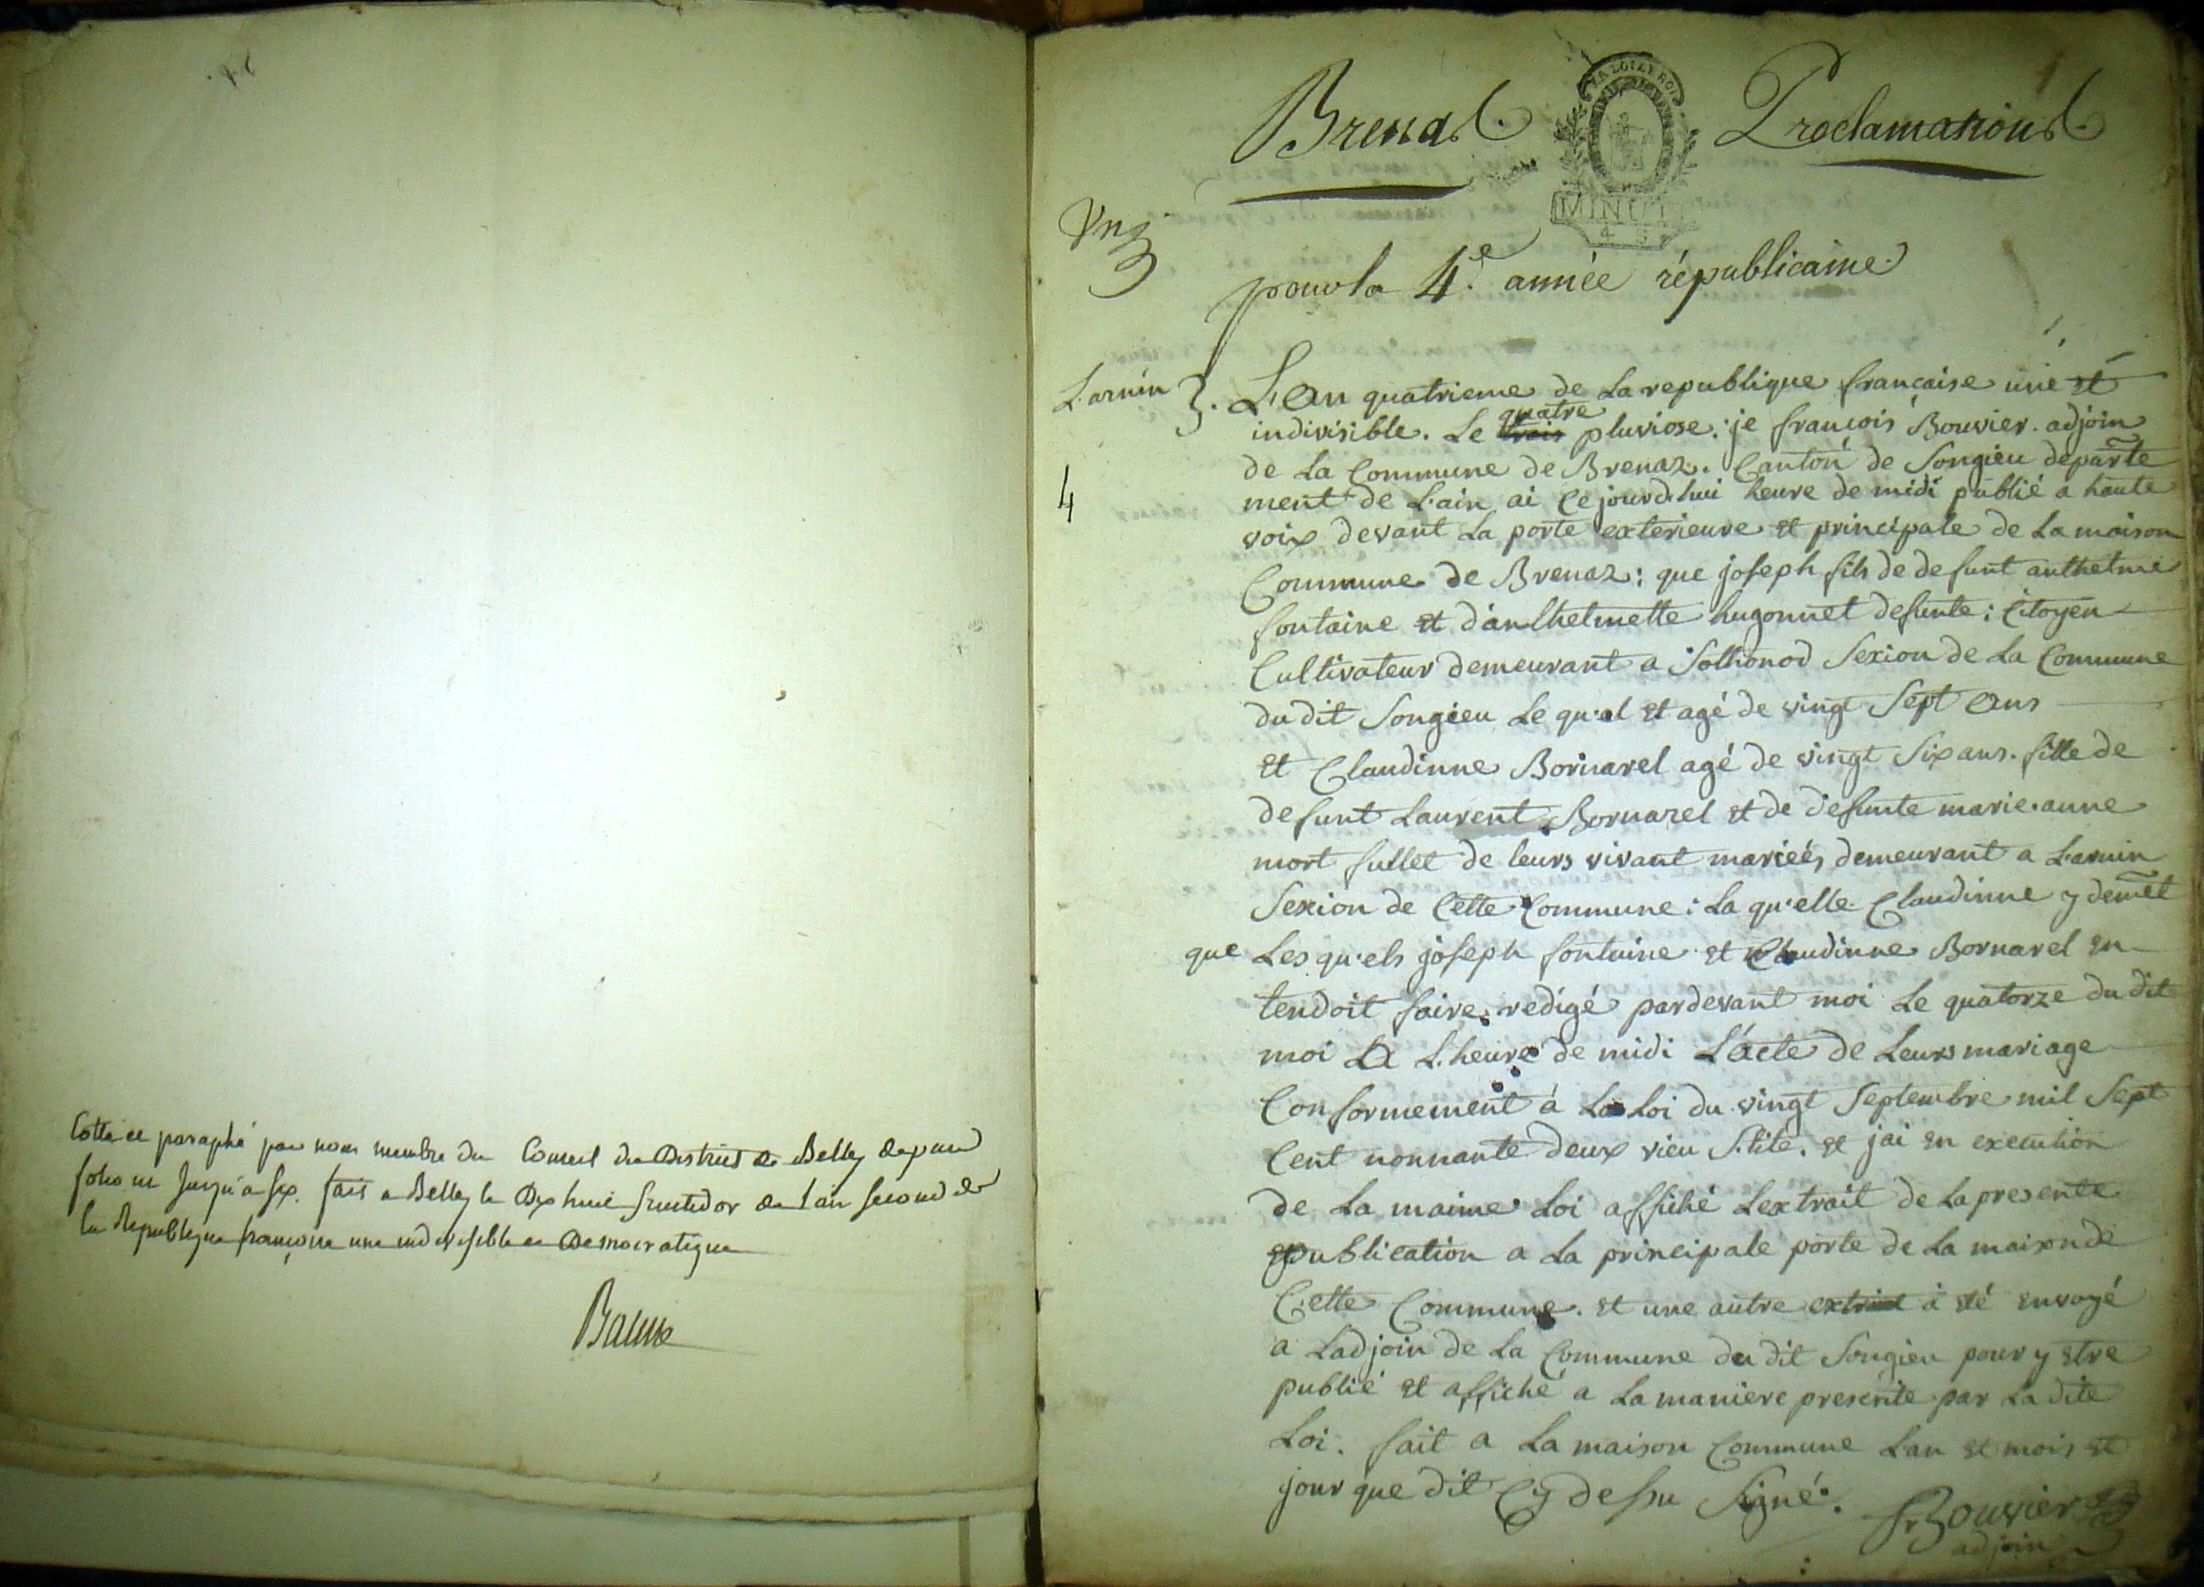 Cotté et paraphé par nous membre du Conseil du District de Belley depuis
folio un jusqu'a six. fait a Belley le Dix huit fructidor de l'an second de
la Republique françoise une indivisible et Democratique
Brenaz. Proclamations
LA LOI ET LE ROI
MINUTE
pour la 4.e année républicaine
L'arnin 3. L'An quatrieme de La republique française une et
indivisible. Le trois quatre pluviose. je françois Bouvier. adjoin
de La Commune de Brenaz. Canton de Songieu departe
4
ment de L'ain ai Ce jourd'hui heure de midi publié a haute
voix devant La porte exterieure et principale de La maison
Commune de Brenaz: que joseph fils de defunt anthelme
fontaine et d'anthelmette hugonnet defunte: Citoyen
Cultivateur demeurant a Sothonod Sexion de La Commune
du dit Songieu Le qu'el et agé de vingt Sept Ans
et Claudinne Bornarel agé de vingt Six ans. fille de
defunt Laurent Bornarel et de defunte marie.anne
mort fullet de leurs vivant mariés, demeurant a L'arnin
Sexion de Cette Commune: La qu'elle Claudinne y demet
que Les qu'els joseph fontaine et Claudinne Bornarel en
tendoit faire redigé pardevant moi Le quatorze du dit
moi La L'heure de midi L'acte de Leurs mariage
Conformement á La Loi du vingt Septembre mil Sept
Cent nonnante deux vieu Stite. et jai en execution
de La maime Loi affiché Lextrait de La presente
publication a La principale porte de La maixn de
Cette Commune. et une autre extrait á eté envoyé
a Ladjoin de La Commune du dit Songieu pour y etre
publié et affiché a La maniere prescrite par La dite
Loi. fait a La maison Commune L'an et mois et
jour que dit Cy dessu Signé. fr Bouvier
adjoin